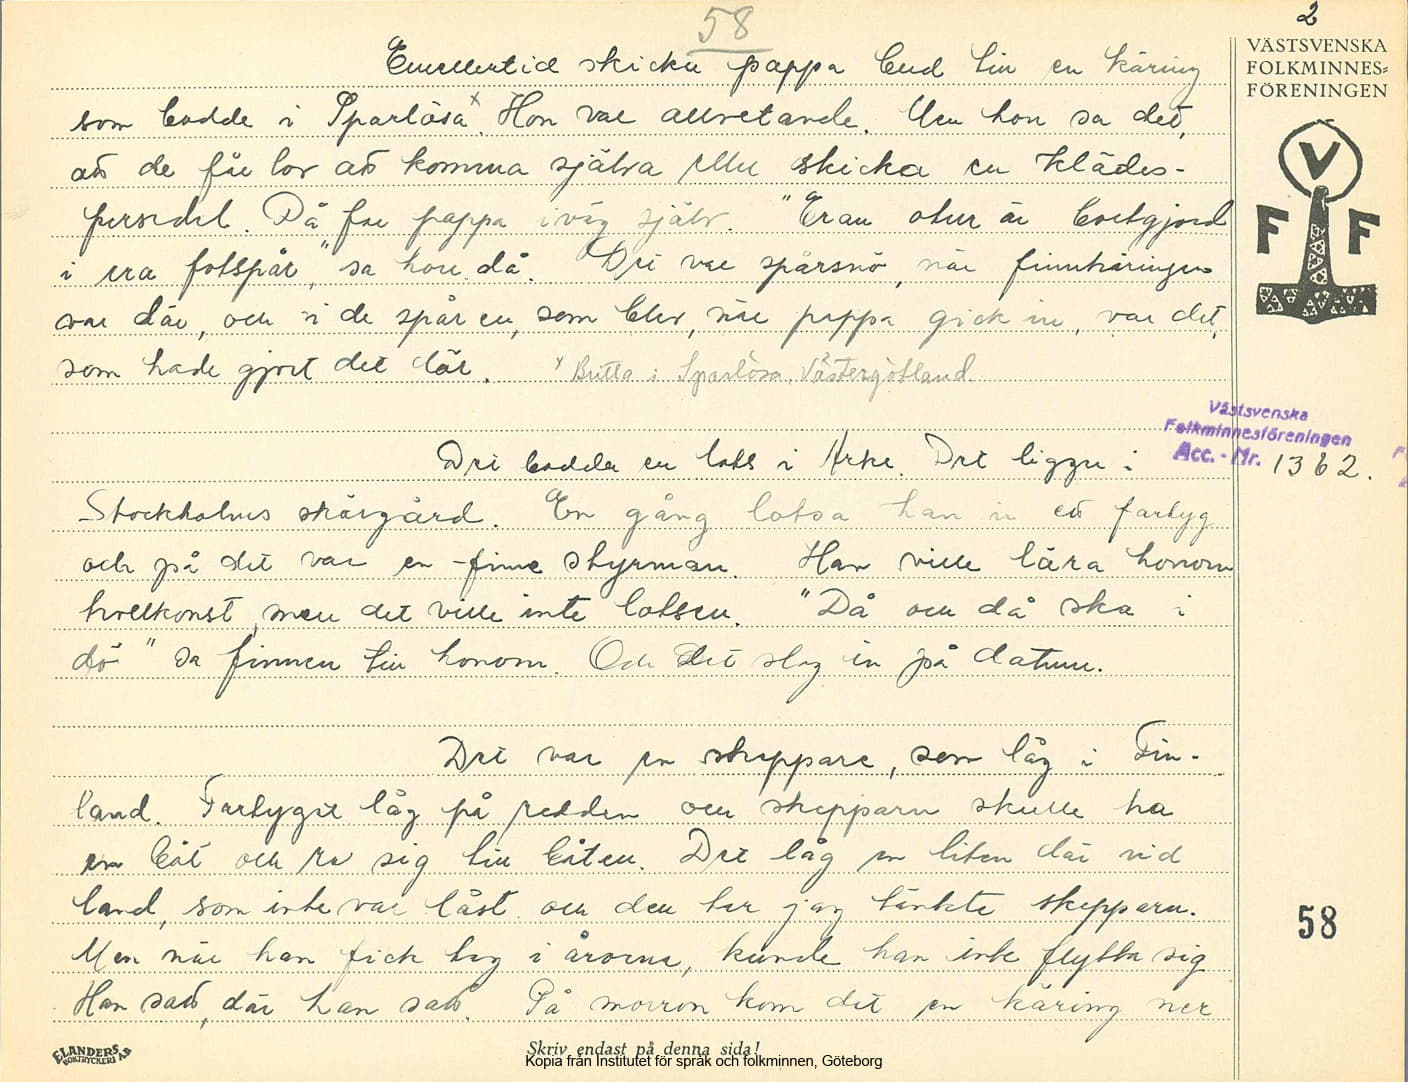 58
2
VÄSTSVENSKA
FOLKMINNES=
FÖRENINGEN
V
F F
Emellertid skicka pappa bud till en käring
som bodde i Sparlösa x. Hon var allvetande. Men hon sa det,
att de får lov att komma själva eller skicka en klädes-
persedel. Då for pappa iväg själv. "Eran otur är bortgjord
i era fotspår", sa hon då. Det var spårsnö, när finnkäringen
var där, och i de spåren, som blev, när pappa gick in, var det,
som hade gjort det där. x Britta i Sparlösa, Västergötland.
Västsvenska
Folkminnesföreningen
Acc. - Nr. 1362.
Det bodde en lots i Arke. Det ligger i
Stockholms skärgård. En gång lotsa han in ett fartyg
och på det var en finne styrman. Han ville lära honom
trollkonst, men det ville inte lotsen. "Då och då ska i
dö" sa finnen till honom. Och det slog in på datum.
Det var en skeppare, som låg i Fin-
land. Fartyget låg på redden och skepparn skulle ha
en båt och ro sig till båten. Det låg en liten där vid
land, som inte var låst och den tar jag tänkte skepparn.
Men när han fick tag i årorna, kunde han inte flytta sig
Han satt, där han satt. På morron kom det en käring ner
58
ELANDERS
BOKTRYCKERI A.B
Skriv endast på denna sida!
Kopia från Institutet för språk och folkminnen, Göteborg